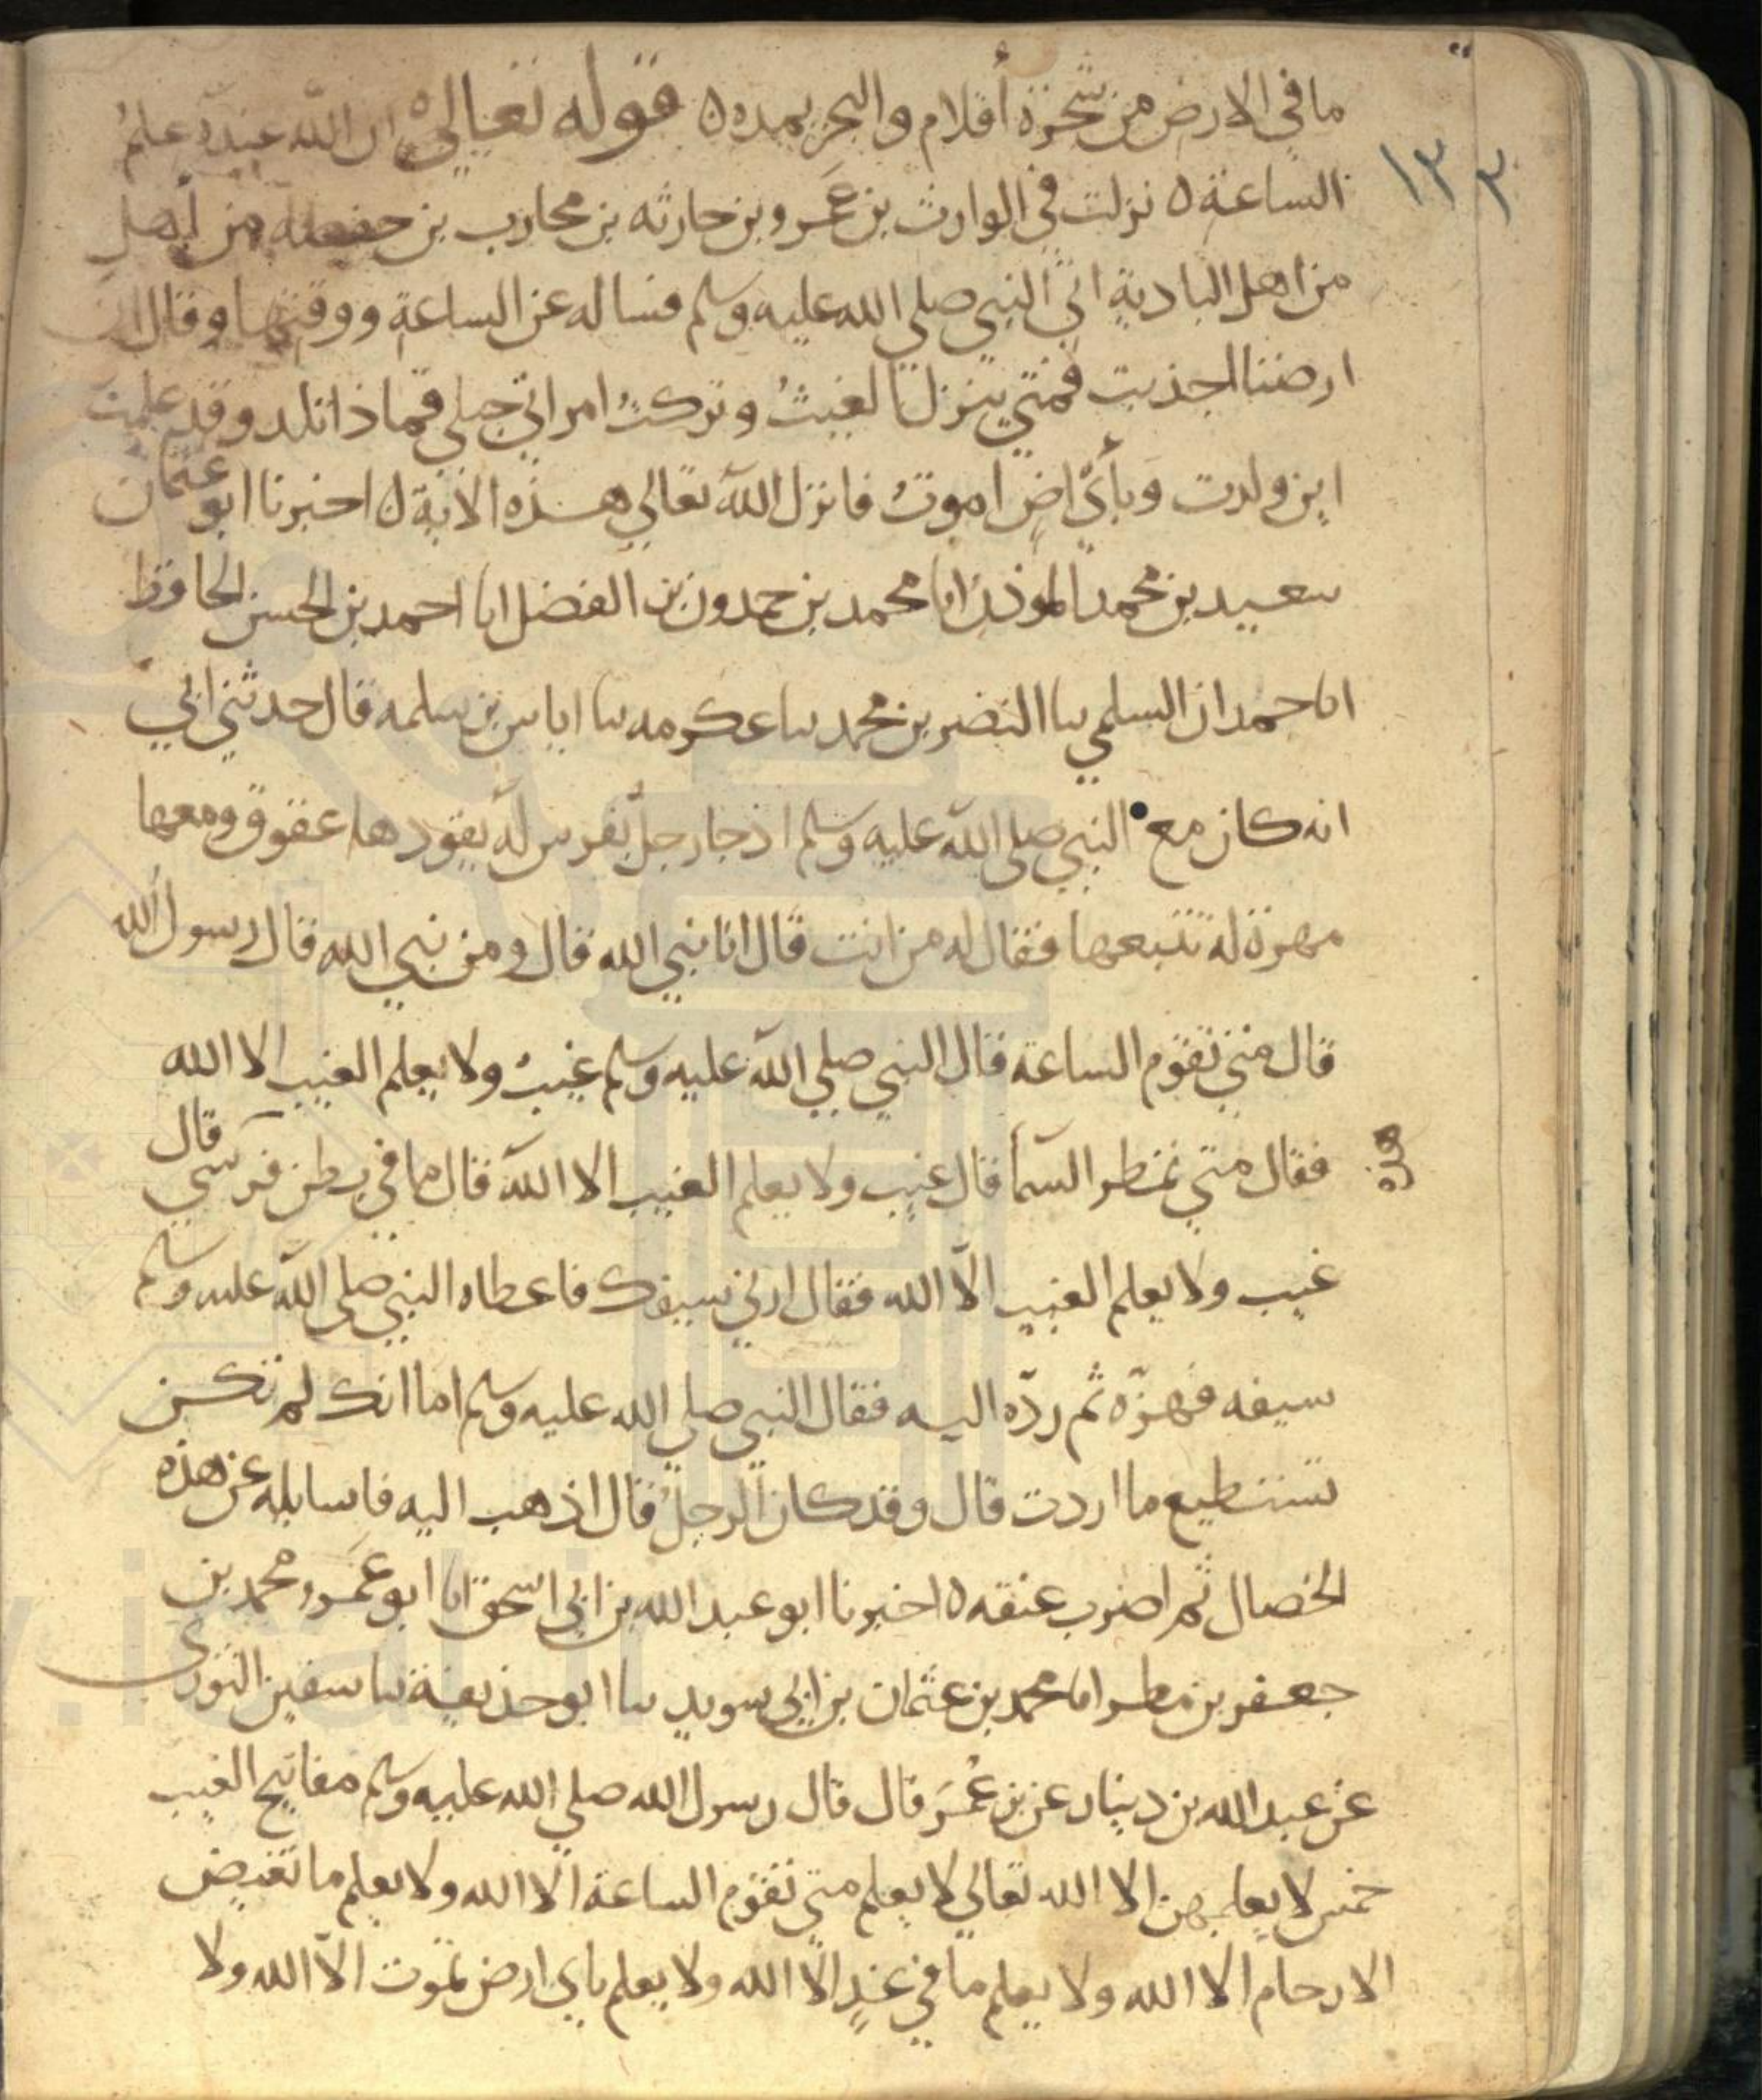 ما في الارض من شجرة أقلام والبحر يمده ه قوله تعالى ان الله عنده علم
الساعة ه نزلت في الوارث بن عمرو بن حارثه بن محارب بن حفصه من أهل
من اهل البادية اتى النبي صلى الله عليه وسلم فساله عن الساعة ووقتها وقال ان
ارضنا اجدبت فمتى ينزل الغيث وتركت امراتي حبلى فماذا تلد وقد علمت
اين ولدت وبأي ارض اموت فانزل الله تعالى هذه الاية ه اخبرنا ابو عثمان
سعيد بن محمد المؤذن انا محمد بن حمدون بن الفضل انا احمد بن الحسن الحافظ
انا حمدان السلمي نا النضر بن محمد نا عكرمه نا اياس بن سلمه قال حدثني ابي
انه كان مع النبي صلى الله عليه وسلم اذ جا رجل بفرس له يقودها عقوق ومعها
مهرة له تتبعها فقال له من انت قال انا نبي الله قال ومن نبي الله قال رسول الله
قال متى تقوم الساعة قال النبي صلى الله عليه وسلم غيب ولا يعلم الغيب الا الله
فقال متى تمطر السما قال غيب ولا يعلم الغيب الا الله قال ما في بطن فرسي قال
غيب ولا يعلم الغيب الا الله فقال ارني سيفك فاعطاه النبي صلى الله عليه وسلم
سيفه فهزه ثم رده اليه فقال النبي صلى الله عليه وسلم اما انك لم تكن
تستطيع ما اردت قال وقد كان الرجل قال اذهب اليه فاسايله عن هذه
الخصال ثم اضرب عنقه ه اخبرنا ابو عبد الله بن ابي اسحق انا ابو عمرو محمد بن
جعفر بن مطر انا محمد بن عثمان بن ابي سويد نا ابو حذيفة نا سفين الثوري
عن عبد الله بن دينار عن بن عمر قال قال رسول الله صلى الله عليه وسلم مفاتيح الغيب
خمس لا يعلمهن الا الله تعالى لا يعلم متى تقوم الساعة الا الله ولا يعلم ما تغيض
الارحام الا الله ولا يعلم ما في غد الا الله ولا يعلم باي ارض تموت الا الله ولا